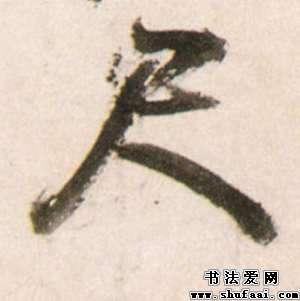 尺
书法爱网
www.shufaai.com